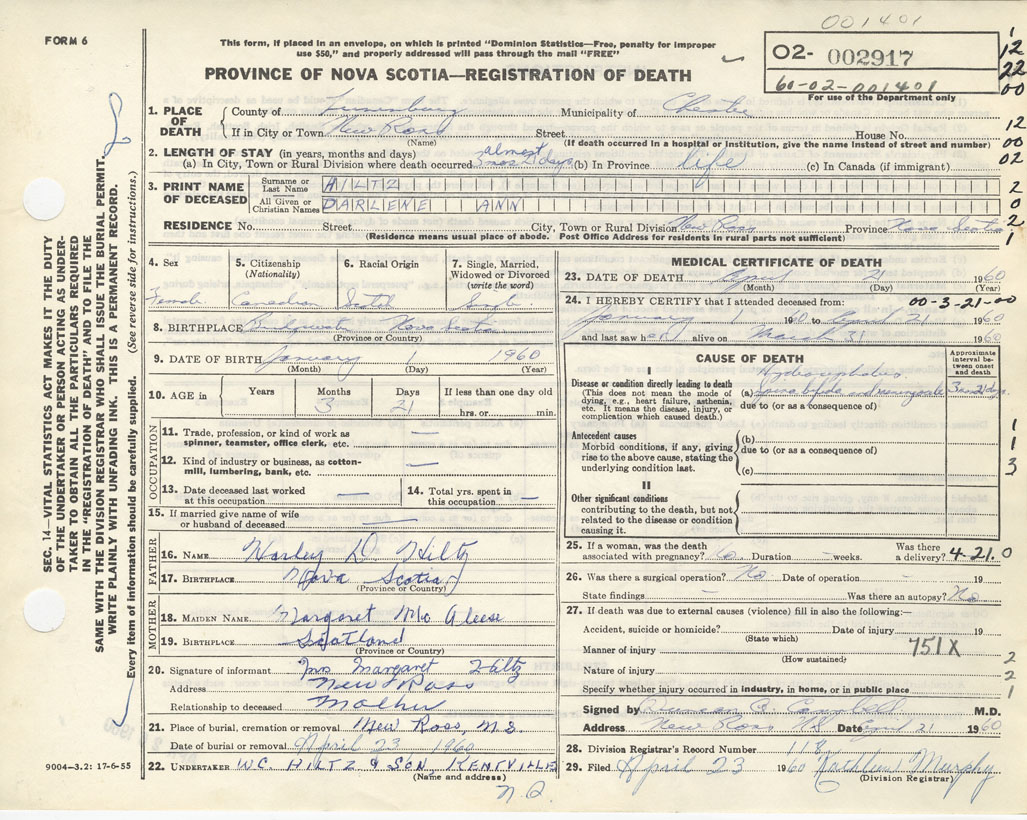 001401
FORM 6
This form, if placed in an envelope, on which is printed "Dominion Statistics—Free, penalty for improper
use $50," and properly addressed will pass through the mail "FREE"
PROVINCE OF NOVA SCOTIA—REGISTRATION OF DEATH
02- 002917
60-02-001401
For use of the Department only
12
22
00
12
00
02
2
0
2
1
SEC. 14—VITAL STATISTICS ACT MAKES IT THE DUTY
OF THE UNDERTAKER OR PERSON ACTING AS UNDER-
TAKER TO OBTAIN ALL THE PARTICULARS REQUIRED
IN THE "REGISTRATION OF DEATH" AND TO FILE THE
SAME WITH THE DIVISION REGISTRAR WHO SHALL ISSUE THE BURIAL PERMIT.
WRITE PLAINLY WITH UNFADING INK. THIS IS A PERMANENT RECORD.
Every item of information should be carefully supplied. (See reverse side for instructions.)
1. PLACE OF DEATH County of Lunenburg Municipality of Chester
If in City or Town New Ross Street House No.
(Name) (If death occurred in a hospital or institution, give the name instead of street and number)
2. LENGTH OF STAY (in years, months and days) almost
(a) In City, Town or Rural Division where death occurred days (b) In Province life (c) In Canada (if immigrant)
3. PRINT NAME OF DECEASED Surname or Last Name HILTZ
All Given or Christian Names DARLENE ANN
RESIDENCE No. Street City, Town or Rural Division New Ross Province Nova Scotia
(Residence means usual place of abode. Post Office Address for residents in rural parts not sufficient)
4. Sex Female
5. Citizenship (Nationality) Canadian
6. Racial Origin Scotch
7. Single, Married, Widowed or Divorced (write the word) Single
8. BIRTHPLACE Bridgewater Nova Scotia
(Province or Country)
9. DATE OF BIRTH January 1 1960
(Month) (Day) (Year)
10. AGE in Years Months Days If less than one day old
3 21 hrs. or min.
OCCUPATION
11. Trade, profession, or kind of work as
spinner, teamster, office clerk, etc. —
12. Kind of industry or business, as cotton-
mill, lumbering, bank, etc. —
13. Date deceased last worked at this occupation —
14. Total yrs. spent in this occupation —
15. If married give name of wife
or husband of deceased —
FATHER
16. NAME Harley D. Hiltz
17. BIRTHPLACE Nova Scotia
(Province or Country)
MOTHER
18. MAIDEN NAME Margaret Mc Aleese
19. BIRTHPLACE Scotland
(Province or Country)
20. Signature of informant Mrs Margaret Hiltz
Address New Ross
Relationship to deceased Mother
21. Place of burial, cremation or removal New Ross N.S.
Date of burial or removal April 23 1960
22. UNDERTAKER W.C. HILTZ & SON KENTVILLE
(Name and address)
9004-3.2: 17-6-55
MEDICAL CERTIFICATE OF DEATH
23. DATE OF DEATH April 21 1960
(Month) (Day) (Year)
24. I HEREBY CERTIFY that I attended deceased from: 00-3-21-00
January 1 1960 to April 21 1960
and last saw her alive on March 31 1960
CAUSE OF DEATH
Approximate interval between onset and death
I
Disease or condition directly leading to death
(This does not mean the mode of dying, e.g., heart failure, asthenia, etc. It means the disease, injury, or complication which caused death.)
Hydrocephalus
(a)
due to (or as a consequence of)
Antecedent causes
Morbid conditions, if any, giving rise to the above cause, stating the underlying condition last.
(b)
due to (or as a consequence of)
(c)
1
1
3
II
Other significant conditions
contributing to the death, but not related to the disease or condition causing it.
25. If a woman, was the death associated with pregnancy? Duration - weeks. Was there a delivery? 4-21.0
26. Was there a surgical operation? No Date of operation - 19
State findings - Was there an autopsy? No
27. If death was due to external causes (violence) fill in also the following:—
Accident, suicide or homicide? Date of injury 19
(State which)
Manner of injury 751X
(How sustained)
Nature of injury
Specify whether injury occurred in industry, in home, or in public place
2
2
1
Signed by Campbell M.D.
Address New Ross NS Date April 21 1960
28. Division Registrar's Record Number 118
29. Filed April 23 1960 Kathleen Murphy
(Division Registrar)